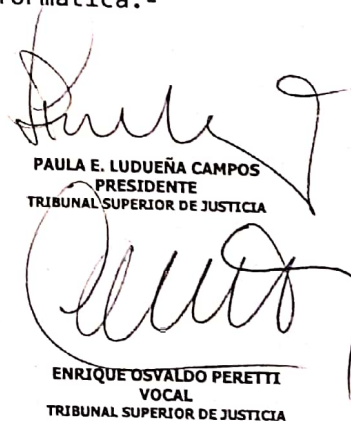 ormática.-
PAULA E. LUDUEÑA CAMPOS
PRESIDENTE
TRIBUNAL SUPERIOR DE JUSTICIA
ENRIQUE OSVALDO PERETTI
VOCAL
TRIBUNAL SUPERIOR DE JUSTICIA